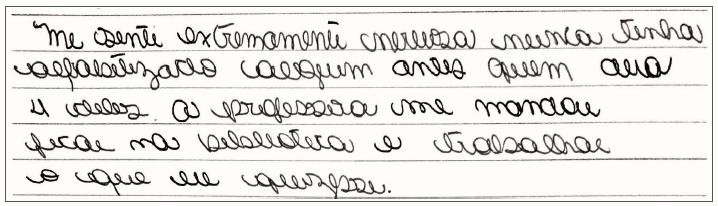 "Me senti extremamenti nervosa nunca tinha
alfabetizado alguim antes quem
4 deles. A professora me mandou
ficar na biblioteca e trabalhar
o que eu